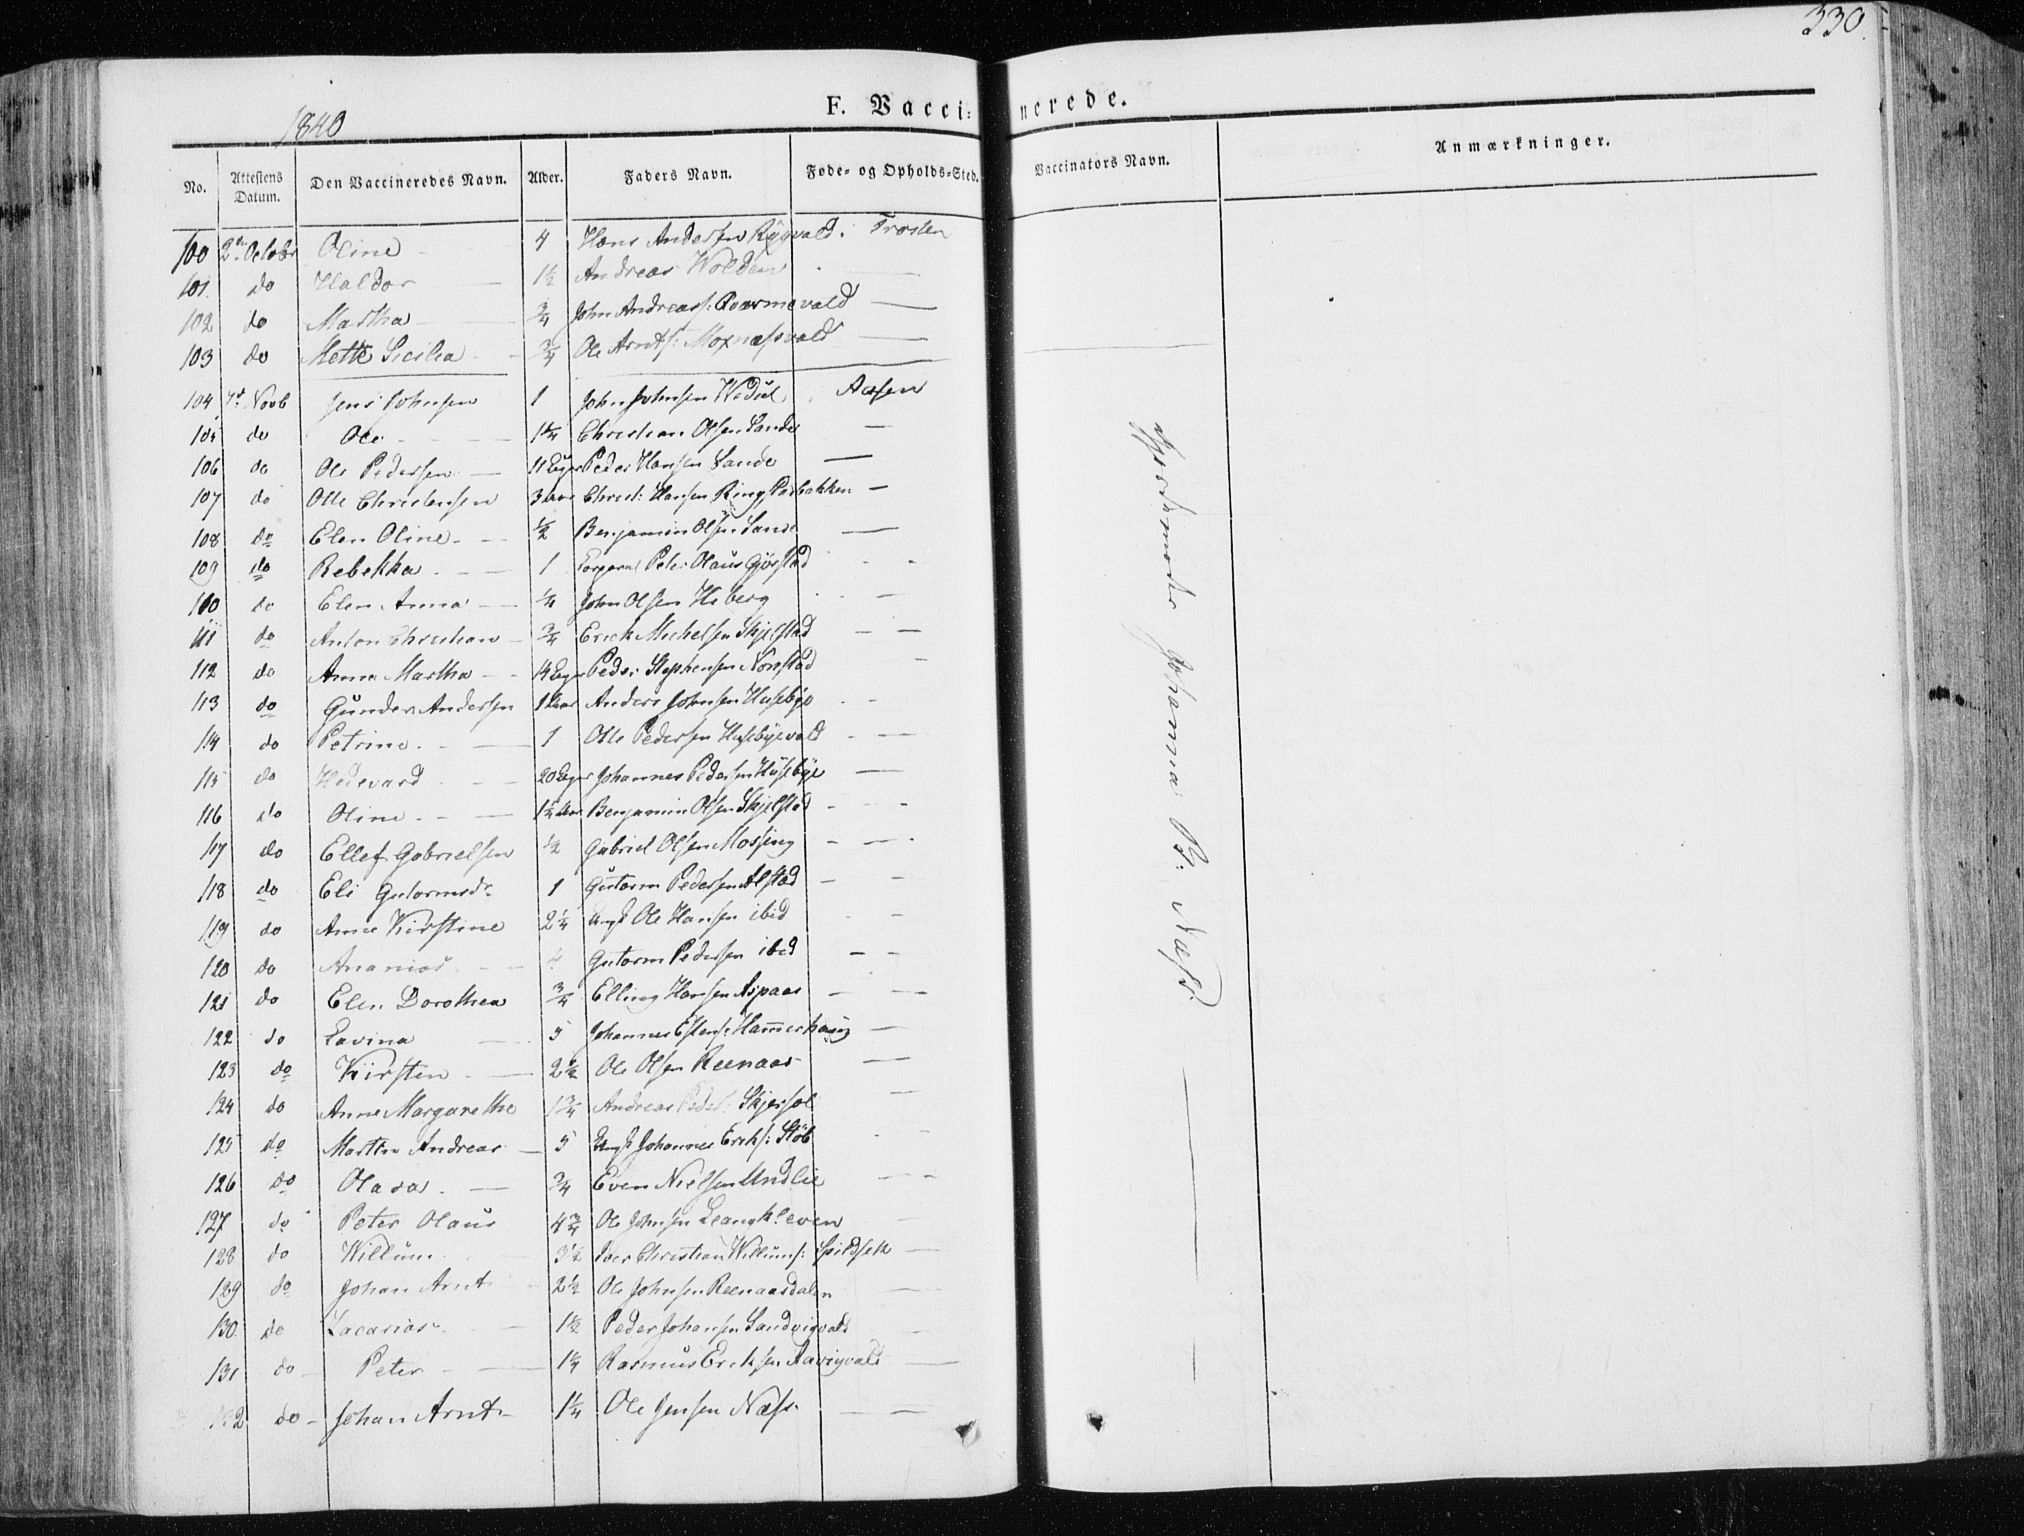 330.
1840
F. Vaccinerede.
No. Attestens Datum. Den Vaccineredes Navn. Alder. Faders Navn. Føde- og Opholds-Sted. Vaccinators Navn. Anmærkninger.
100 2den October Oline 4 Hans Andersen Trosten
101 do Haldor 1½ Andreas Wolden —
102 do Martha ¾ John Andreass: —
103 do Mette Sicilia ¾ Ole Arnts: Moxnæssvald —
104 7de Novb Jens Johnsen 1 John Johnsen Wedul Aasen
105 do Ole 1¼ Christian Olsen Sande —
106 do Ole Pedersen 11 Uger Peder Hansen Sande —
107 do Olle Christensen 3 Aar Christ: Hansen —
108 do Elen Oline ½ Benjamin Olsen Sande —
109 do Rebekka 1 Peter Olaus Gjøstad
110 do Elen Anna ¼ John Olsen Hoberg —
111 do Anton Christian ¾ Erick Michelsen Skjelstad —
112 do Anne Martha 14 Uger Peder Stephensen Norstad
113 do Gunder Andersen 1 Aar Anders Johnsen Husebye
114 do Petrine 1 Olle Pedersen Husebyevald —
115 do Hedevard 20 Uger Johannes Pedersen Husebye —
116 do Oline 1½ Aar Benjamin Olsen Skjelstad —
117 do Ellef Gabrielsen ½ Gabriel Olsen Mossing —
118 do Eli Gutormsdr 1 Gutorm Pedersen Alstad —
119 do Anne Kirstine 2¼ Ungk Ole Hansen ibid —
120 do Ananias Gutorm Pedersen ibid —
121 do Elen Dorothea ¾ Elling Hansen Aspaas —
122 do Lavina 5 Johannes Estens: Hammerhaug —
123 do Kirsten 2½ Ole Olsen Reenaas —
124 do Anne Margarethe 1¾ Andreas Peders: —
125 do Morten Andreas 5 Ungk Johannes Ericks: Støb —
126 do Olava ¾ Even Nielsen Undlie —
127 do Peter Olaus 4¾ Ole Johnsen Leangkleven —
128 do Willum 3½ Iver Christian Willums: —
129 do Johan Arnt 2½ Ole Johnsen Reenaasdalen —
130 do Zacarias 1½ Peder Johansen Sandvigvald —
131 do Peter 1¼ Rasmus Ericksen Aavigvald —
132 do Johan Arnt 1¼ Ole Jensen Næss —
Johanna B: Næss